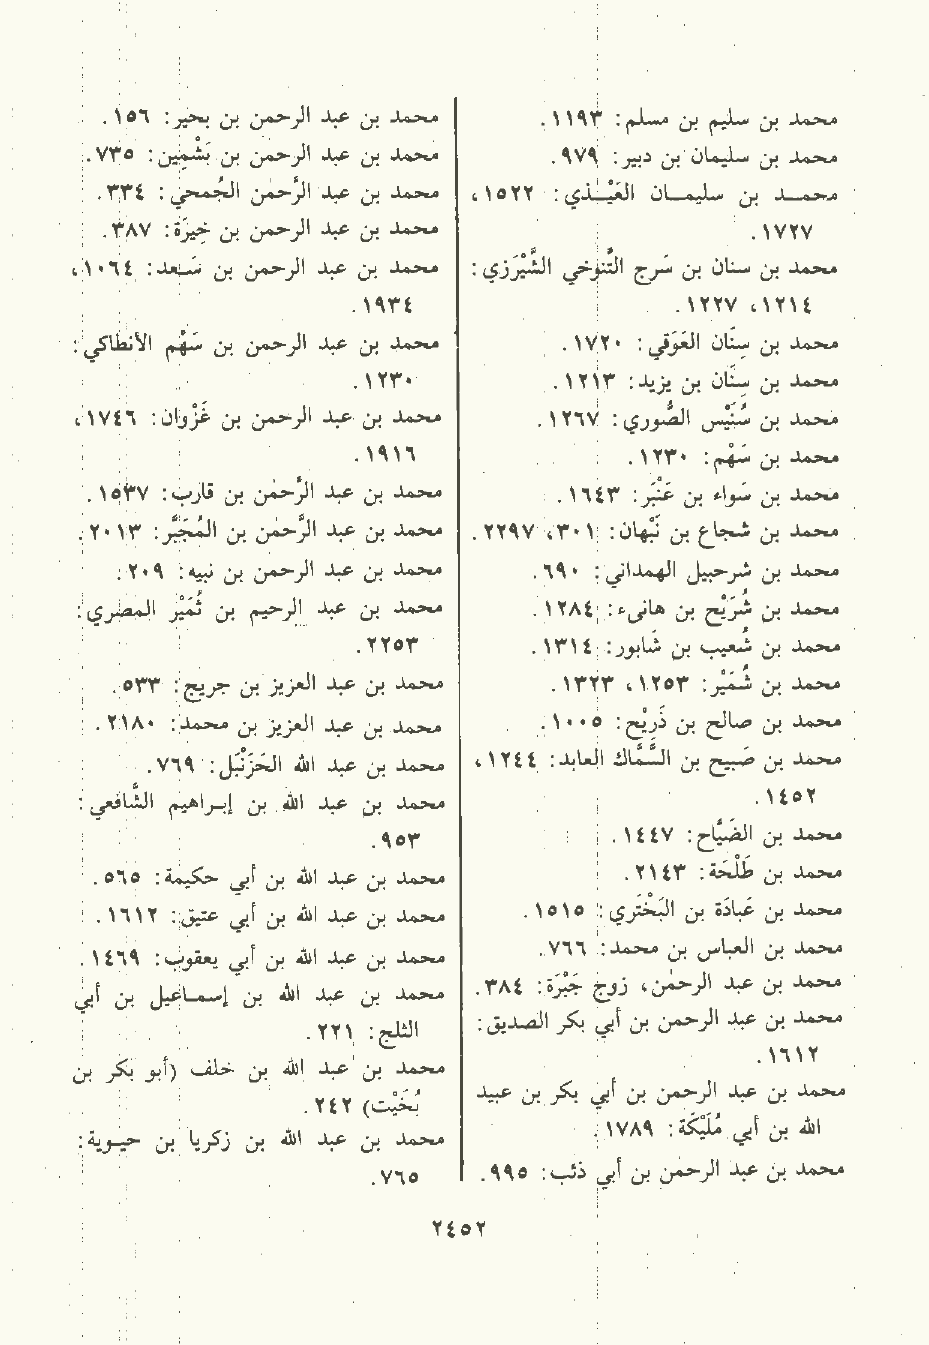 محمد بن سليم بن مسلم: ١١٩٣.
محمد بن سليمان بن دبير: ٩٧٩.
محمــد بن سليمــان العَيْــذي: ١٥٢٢،
١٧٢٧.
محمد بن سنان بن سَرج التَّنُوخي الشَّيْرَزي:
١٢١٤، ١٢٢٧.
محمد بن سِنَان العَوَقي: ١٧٢٠.
محمد بن سِنَان بن يزيد: ١٢١٣.
محمد بن سُنَيْس الصُّوري: ١٢٦٧.
محمد بن سَهْم: ١٢٣٠.
محمد بن سَواء بن عَنْبَر: ١٦٤٣.
محمد بن شجاع بن نَبْهان: ٣٠١، ٢٢٩٧.
محمد بن شرحبيل الهمداني: ٦٩٠.
محمد بن شُرَيْح بن هانىء: ١٢٨٤.
محمد بن شُعيب بن شَابور: ١٣١٤.
محمد بن شُمَيْر: ١٢٥٣، ١٣٢٣.
محمد بن صالح بن ذَرِيْح: ١٠٠٥.
محمد بن صَبيح بن السَّمَّاك العابد: ١٢٤٤،
١٤٥٢.
محمد بن الضَّيَّاح: ١٤٤٧.
محمد بن طَلْحَة: ٢١٤٣.
محمد بن عَبادَة بن البَخْتَري: ١٥١٥.
محمد بن العباس بن محمد: ٧٦٦.
محمد بن عبد الرحمٰن، زوج جَبْرَة: ٣٨٤.
محمد بن عبد الرحمن بن أبي بكر الصديق:
١٦١٢.
محمد بن عبد الرحمن بن أبي بكر بن عبيد
الله بن أبي مُلَيْكَة: ١٧٨٩.
محمد بن عبد الرحمٰن بن أبي ذئب: ٩٩٥.
محمد بن عبد الرحمن بن بحير: ١٥٦.
محمد بن عبد الرحمن بن بَشْمِين: ٧٣٥.
محمد بن عبد الرَّحمٰن الجُمحي: ٣٣٤.
محمد بن عبد الرحمن بن خِيرَة: ٣٨٧.
محمد بن عبد الرحمن بن سَـعد: ١٠٦٤،
١٩٣٤.
محمد بن عبد الرحمن بن سَهْم الأنطاكي:
١٢٣٠.
محمد بن عبد الرحمن بن غَزْوان: ١٧٤٦،
١٩١٦.
محمد بن عبد الرَّحمٰن بن قارب: ١٥٣٧.
محمد بن عبد الرَّحمٰن بن المُجَبَّر: ٢٠١٣.
محمد بن عبد الرحمن بن نبيه: ٢٠٩.
محمد بن عبد الرحيم بن ثُمَيْر المصري:
٢٢٥٣.
محمد بن عبد العزيز بن جريج: ٥٣٣.
محمد بن عبد العزيز بن محمد: ٢١٨٠.
محمد بن عبد الله الحَزَنْبَل: ٧٦٩.
محمد بن عبد الله بن إبـراهيم الشَّافعي:
٩٥٣.
محمد بن عبد الله بن أبي حكيمة: ٥٦٥.
محمد بن عبد الله بن أبي عتيق: ١٦١٢.
محمد بن عبد الله بن أبي يعقوب: ١٤٦٩.
محمد بن عبد الله بن إسمـاعيل بن أبي
الثلج: ٢٢١.
محمد بن عبد الله بن خلف (أبو بكر بن
بُخَيْت) ٢٤٢.
محمد بن عبد الله بن زكريا بن حيـوية:
٧٦٥.
٢٤٥٢